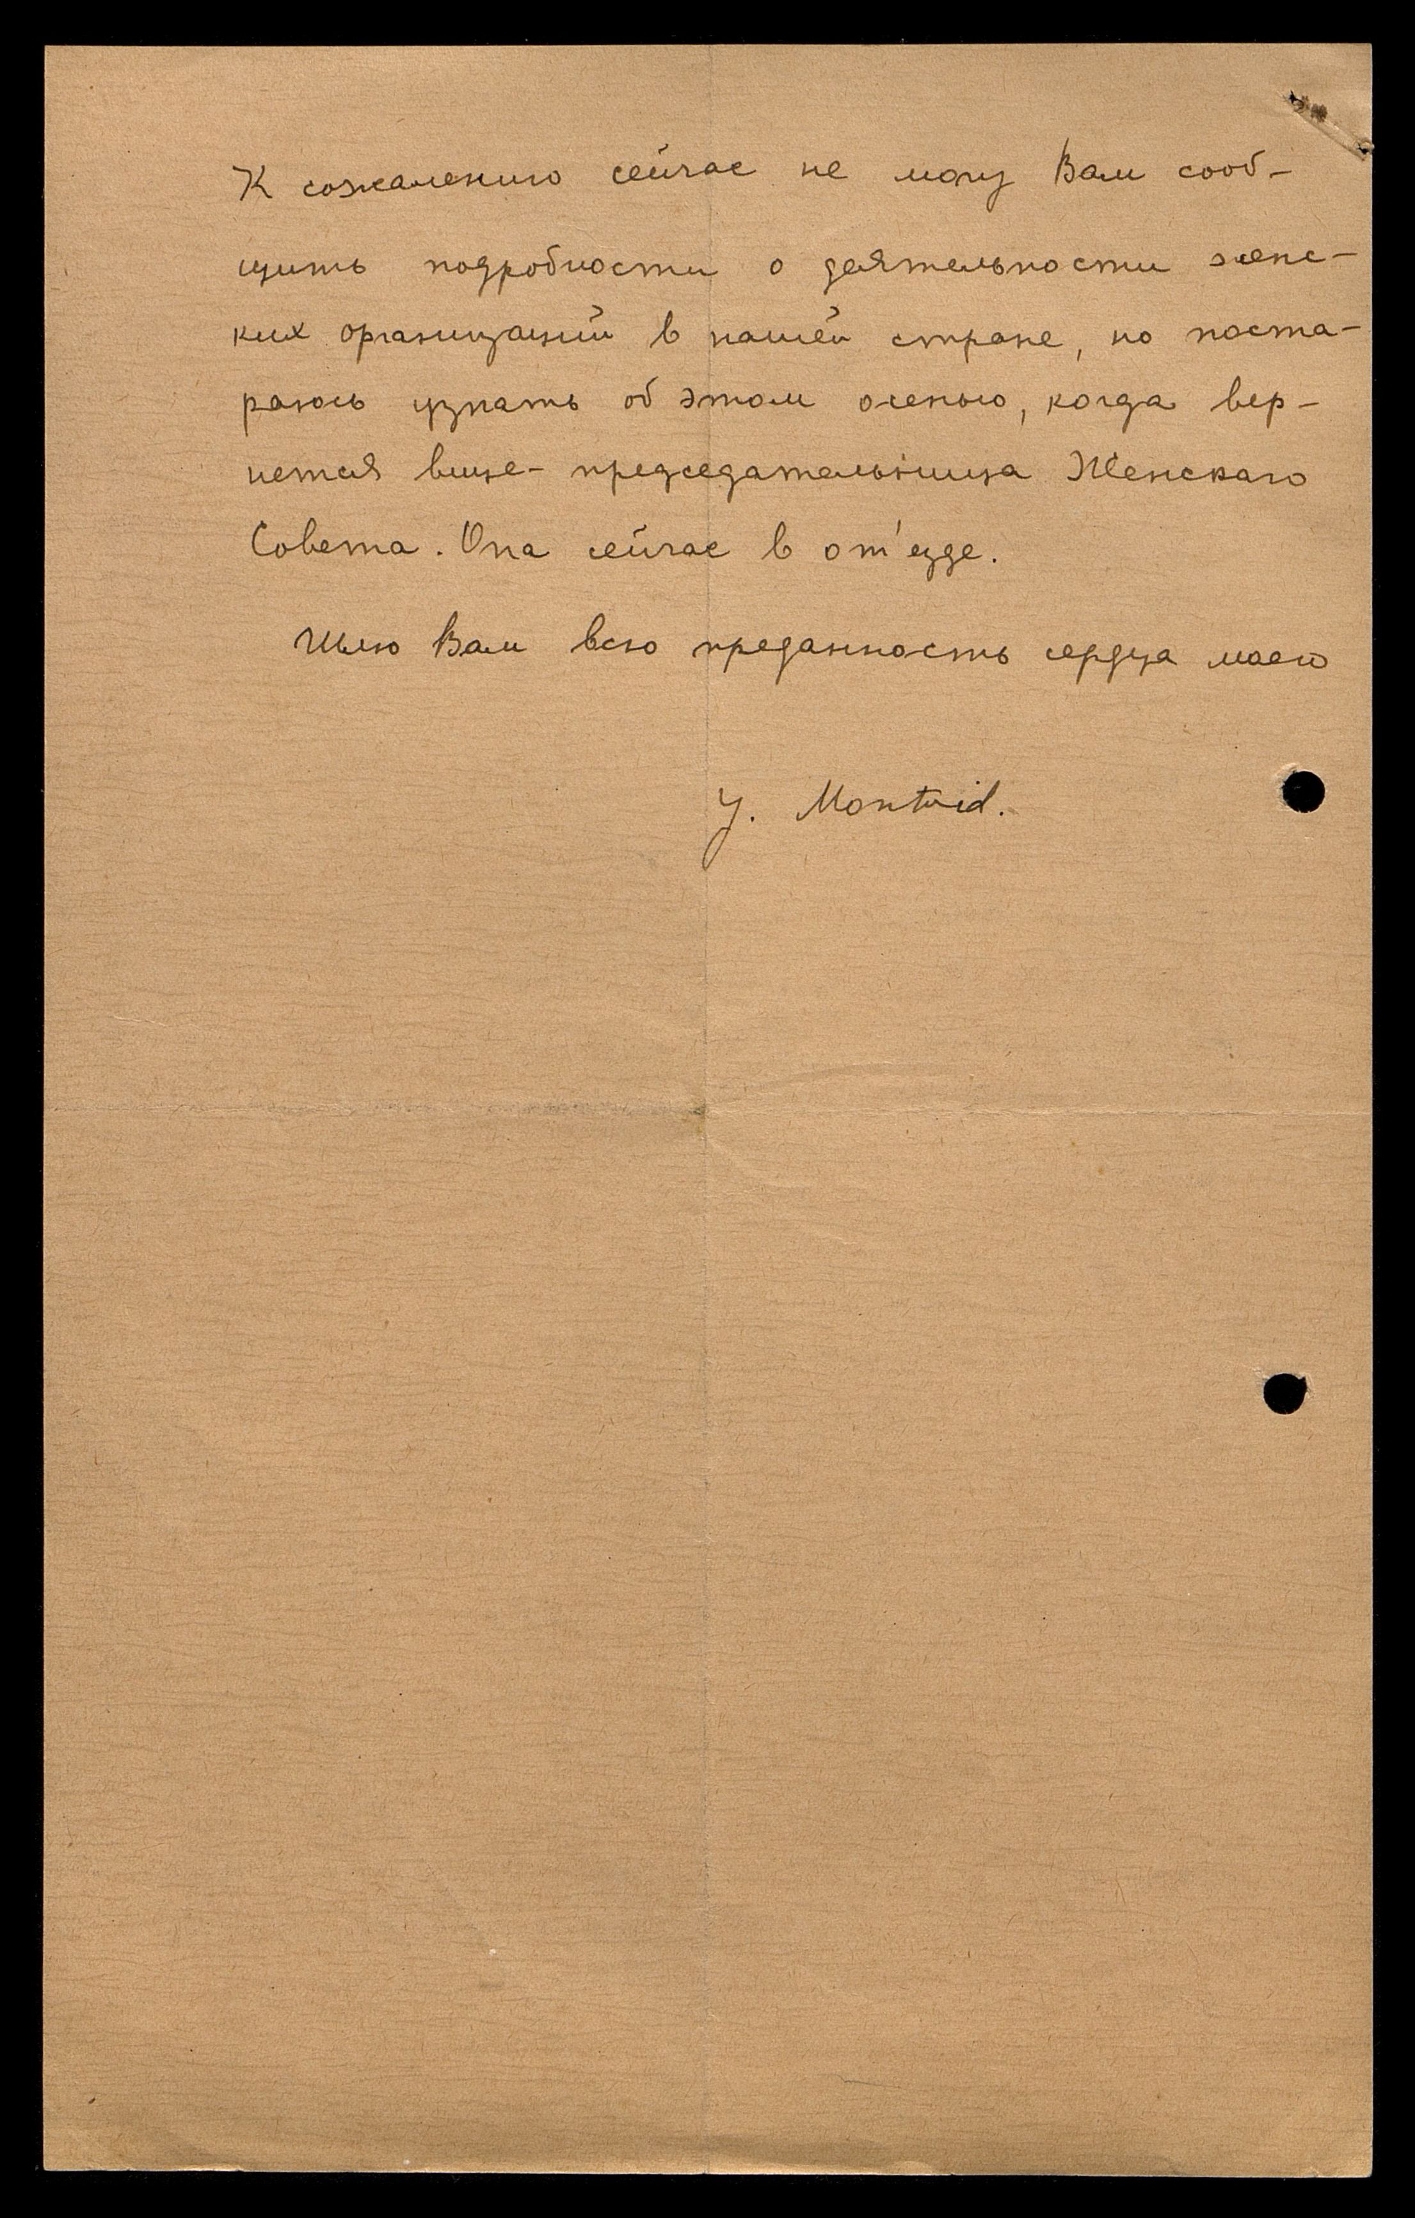 К сожалению сейчас не могу Вам сооб-
щить подробности о деятельности женс-
ких организаций в нашей стране, но поста-
раюсь узнать об этом осенью, когда вер-
нется вице-председательница Женскаго
Совета. Она сейчас в от'езде.
Шлю Вам всю преданность сердца моего
J. Montvid.